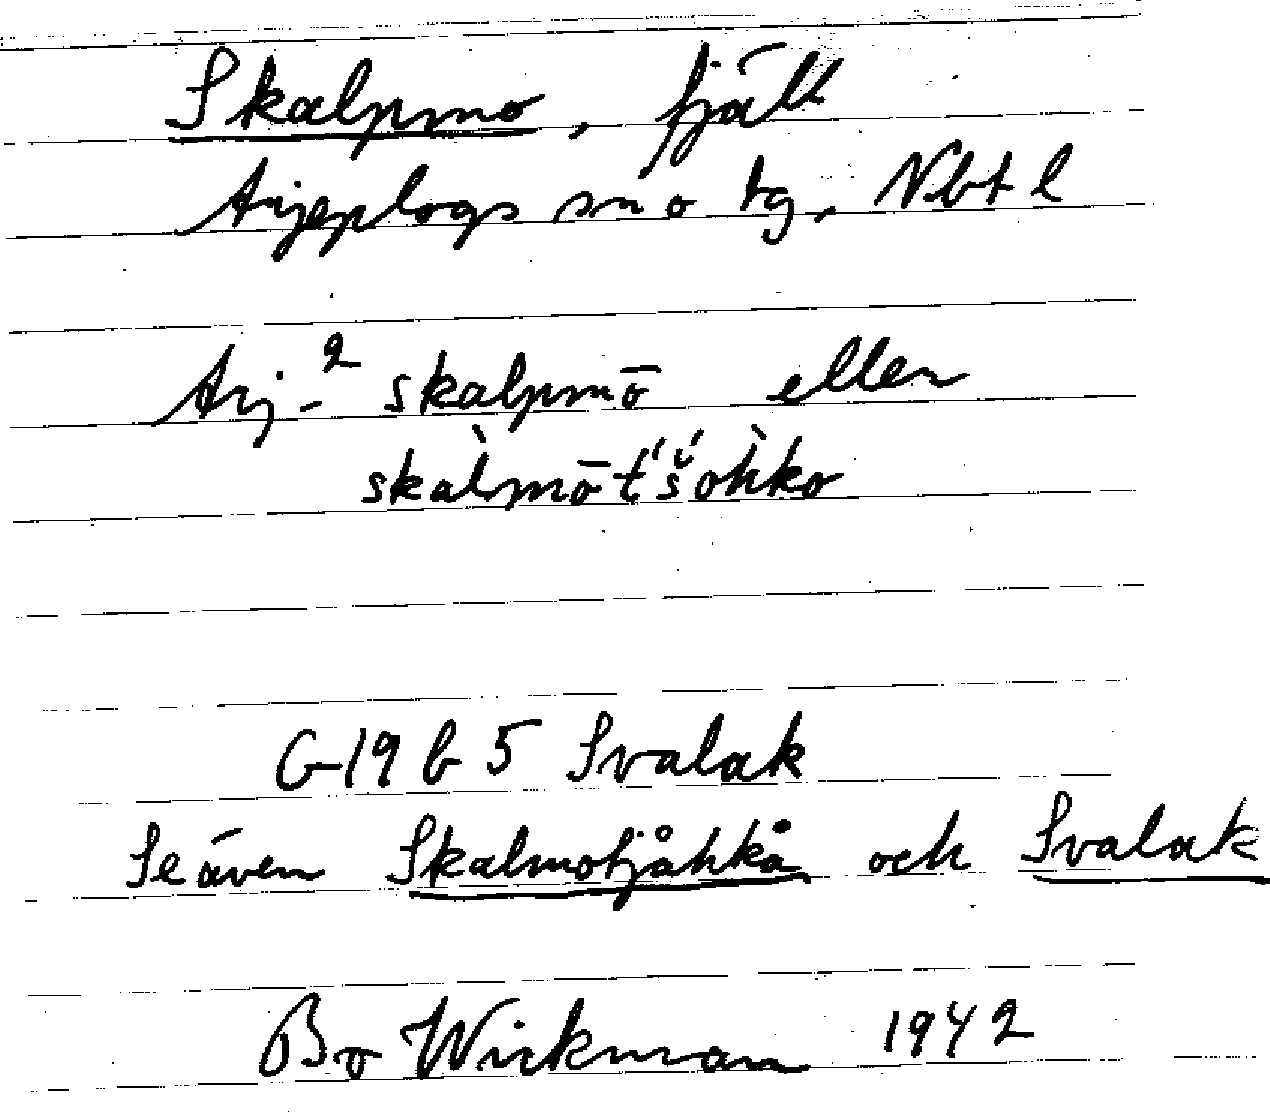 Skalpmo, fjäll
Arjeplogs sn o tg, Nbt l
Arj-2 skalpmō eller
skal̀mōt́'š́ oh̀ko
G 19 b 5 Svalak
Se även Skalmotjåhkå och Svalak
Bo Wickman 1942